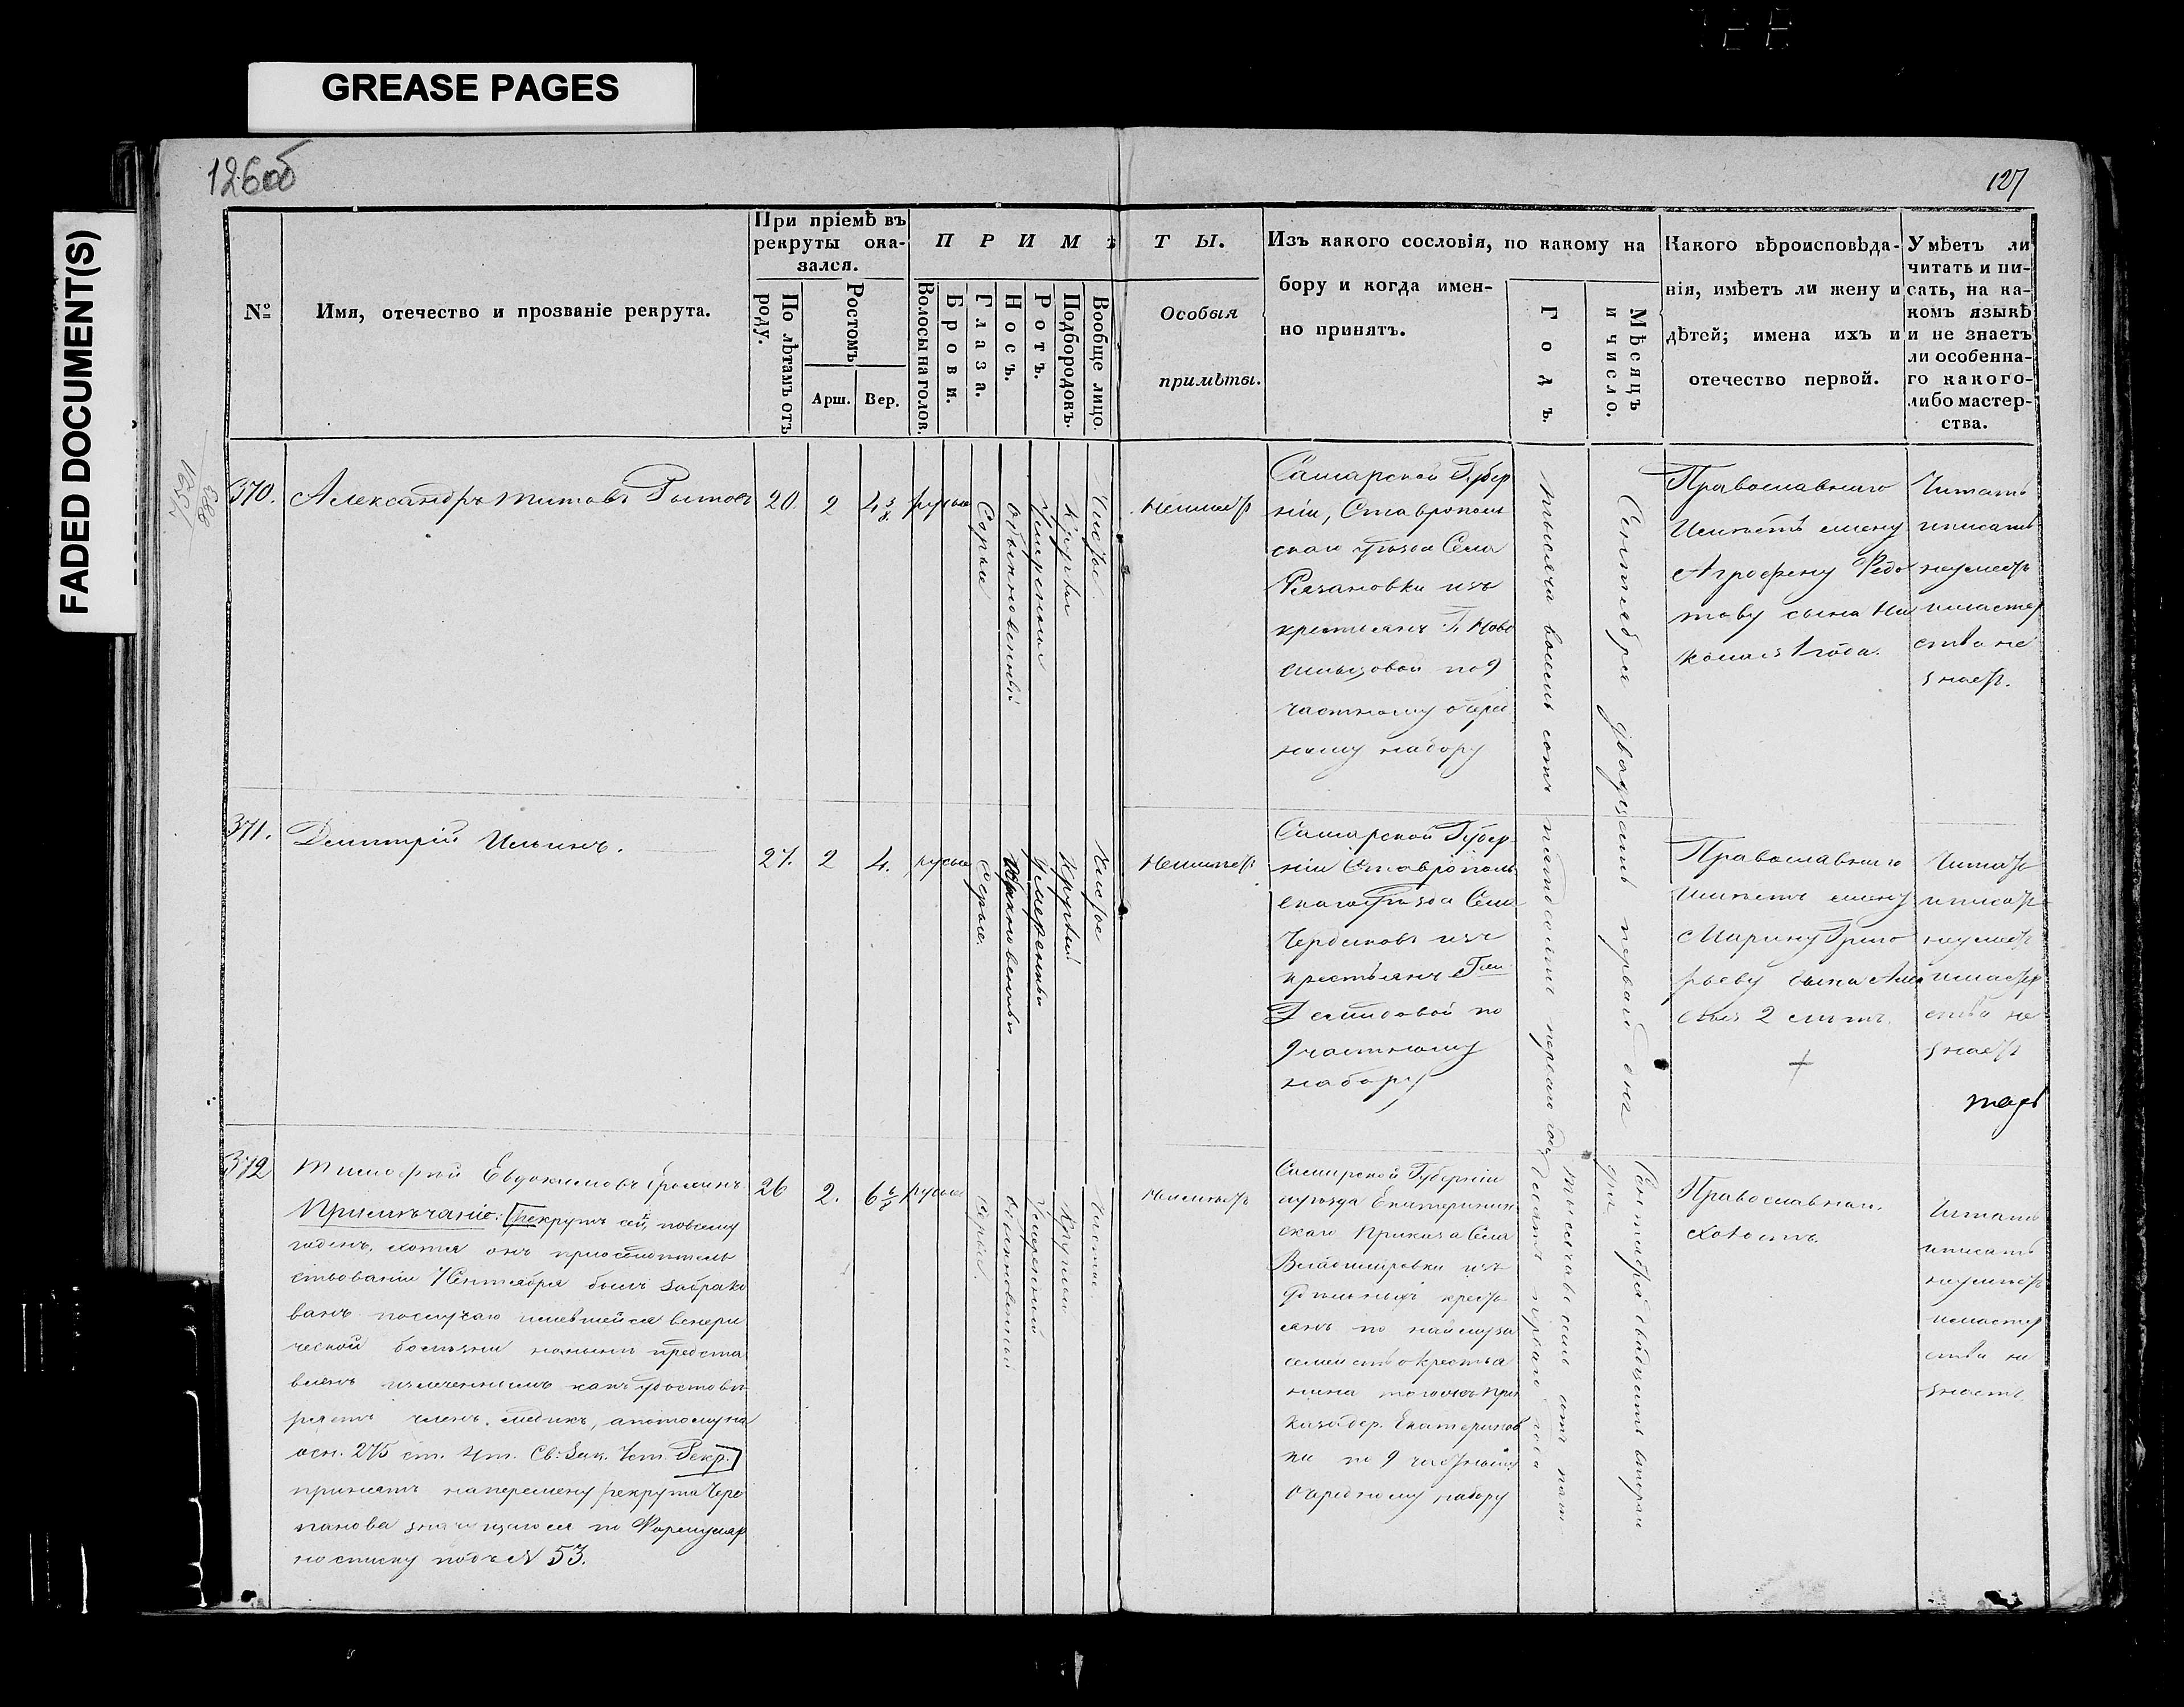 GREASE PAGES
FADED DOCUMENT(S)
126об
127
№
Имя, отечество и прозваніе рекрута.
При пріемѣ въ
рекруты ока-
зался.
По лѣтамъ отъ
роду.
Ростомъ
Арш.
Вер.
ПРИМѢ
ТЫ.
Волосы на голов.
Брови.
Глаза.
Носъ.
Ротъ.
Подбородокъ.
Вообще лицо.
Особыя
примѣты.
Изъ какого сословія, по какому на
бору и когда имен-
но принятъ.
Годъ.
Мѣсяцъ
и число.
Какого вѣроисповѣда-
нія, имѣетъ ли жену и
дѣтей; имена ихъ и
отечество первой.
Умѣетъ ли
читать и пи-
сать, на ка-
комъ языкѣ
и не знаетъ
ли особенна-
го какого-
либо мастер-
ства.
7521
883
370.
Александръ Титовъ
20.
2
4 3/8
русые
Сѣрые
обыкновенный
умеренный
Круглый
Чистое
Неимѣетъ
Самарской Губер
ніи, Ставрополь
скаго уѣзда Села
Рязановки изъ
крестьянъ Г. Ново
сильцовой по 9
частному очеред
ному набору
тысяча восемь сотъ пятьдесятъ перваго года
Сентября двадцать перваго дня
Православнаго
Имѣетъ жену
Агрофену Федо
тову сына Ни
колая 1 года.
Читать
иписать
неумеетъ
имастер
ства не
знаетъ.
371.
Дмитрій Ильинъ.
27.
2
4.
русые
Сѣрые.
Обыкновенный
Умеренный
Круглый
Чистое
Неимѣетъ
Самарской Губер
ніи Ставрополь
скаго Уѣзда Села
изъ
крестьянъ Г-жи
Демидовой по
9 частному
набору
Православнаго
Имѣетъ жену
Марину Григо
рьеву сына Але
ксея 2 лѣтъ.
Читать
иписать
неумеетъ
имастер
ства не
знаетъ
372
Тимофей Евдокимовъ
Примѣчаніе: [Рекрутъ сей, повсему
годенъ, хотя онъ приосвидѣтель
ствованіи 7 Сентября былъ забрако
ванъ послучаю имевшейся венери
ческой болѣзни нонынѣ предста
вленъ излеченнымъ какъ удостовѣ
ряетъ членъ медикъ, апотому на
осн. 275 ст. 4 т. Св: Зак. Уст. Рекр.]
принятъ наперемену рекрута Чере
панова значущагося по Формуляр
носписку подъ N 53.
26
2.
6 6/8
русые
Сѣрые.
обыкновенный
Умеренный
Круглый
Чистое
Неимѣетъ
Симбирской Губерніи
иуѣзда Екатеринин
скаго Приказа Села
Владимировки изъ
Удѣльныхъ кресть
янъ по найму за
семейство крестья
нина тогожъ При
каза дер. Екатеринов
ки по 9 частному
очередному набору
тысяча восемь сотъ пять
десятъ перваго года
Сентября двадцать втораго
дня
Православнаго.
холостъ.
Читать
иписать
неумеетъ
имастер
ства не
знаетъ